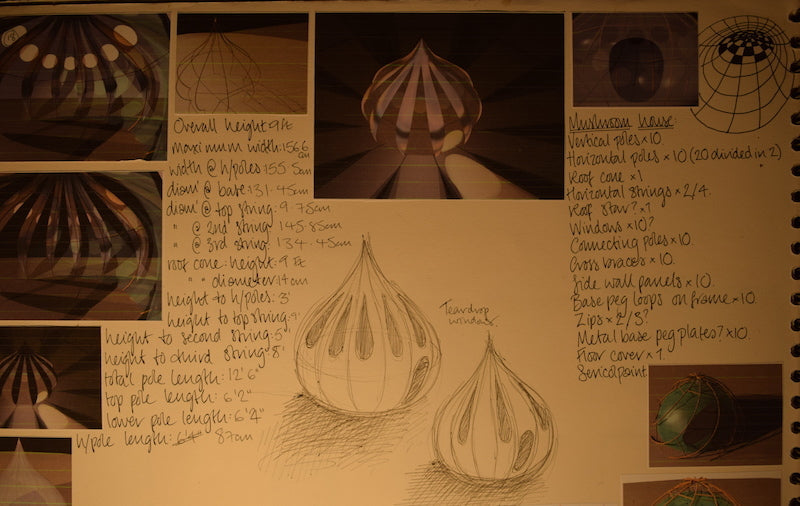 Overall height: 9ft
maximum width: 156.6cm
width @ h/poles: 155.5cm
diam' @ base: 131.45cm
diam' @ top string: 9.75cm
" @ 2nd string: 145.85cm
" @ 3rd string: 134.45cm
roof cone: height: 9ft
" " diameter: 14cm
height to h/poles: 3'
height to top string:
height to second string: 5'
height to third string: 8'
total pole length: 12'6"
top pole length: 6'2"
lower pole length: 6'4"
h/pole length: 6'4" 87cm
Teardrop
windows.
Mushroom house:
Vertical poles × 10.
Horizontal poles × 10 (20 divided in 2)
Roof cone × 1
Horizontal strings × 2/4.
Roof star? × 1
Windows × 10?
Connecting poles × 10.
Cross braces × 10.
Side wall panels × 10.
Base peg loops on frame × 10.
Zips × 2/3?
Metal base peg plates? × 10.
Floor cover × 1